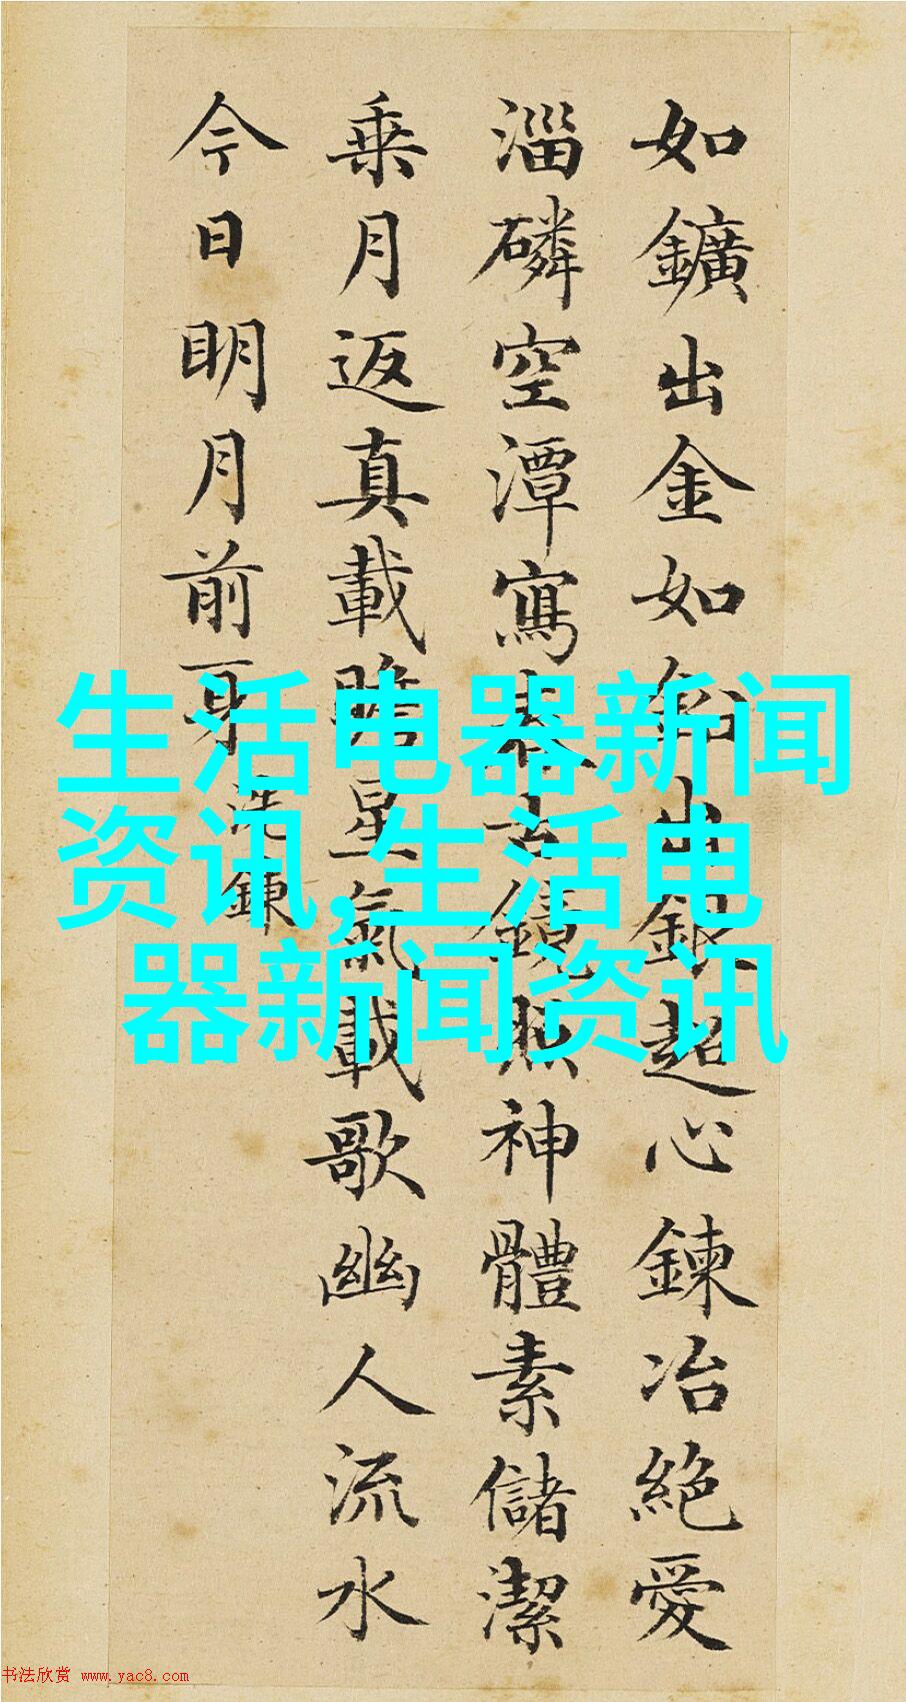 如鑛出金如鉛出銀超心鍊冶絶愛
淄磷空潭寫春古鏡照神體素儲潔
乗月返真載瞻星氣載歌幽人流水
今日明月前身
洗鍊
生活电器新闻
资讯,生活电
器新闻资讯
书法欣赏 www.yac8.com